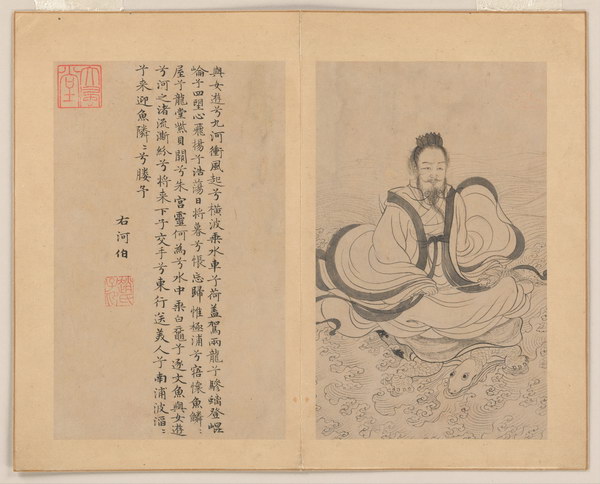 與女遊兮九河衝風起兮橫波乘水車兮荷蓋駕兩龍兮驂螭登崐
崘兮四望心飛揚兮浩蕩日將暮兮悵忘歸惟極浦兮寤懷魚鱗〻
屋兮龍堂紫貝闕兮朱宮靈何為兮水中乘白黿兮逐文魚與女遊
兮河之渚流澌紛兮將来下子交手兮東行送美人兮南浦波滔〻
兮来迎魚隣〻兮媵予
右河伯